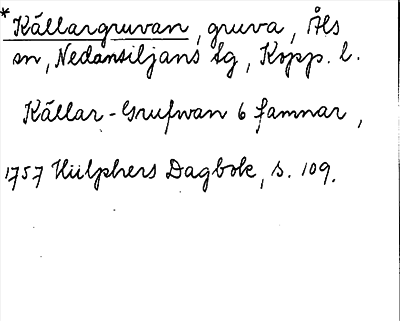 * Källargruvan, gruva, Åls
sn, Nedansiljans lg, Kopp. l.
Källar-Grufwan 6 famnar,
1757 Hülphers Dagbok, s. 109.